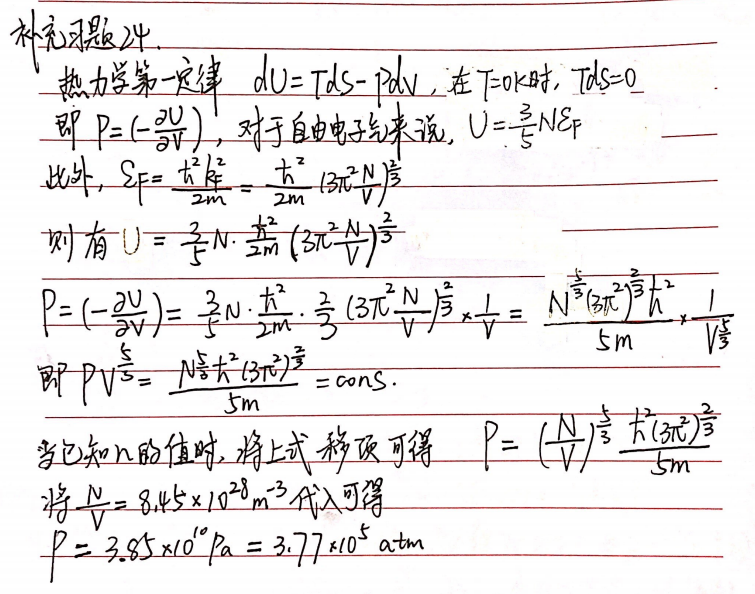 补充习题24.
热力学第一定律 dU=TdS-PdV, 在T=0K时, TdS=0
即 P=(-∂U/∂V), 对于自由电子气来说, U=3/5 Nε_F
此外, ε_F=ħ²k_F²/2m=ħ²/2m (3π² N/V)^(2/3)
则有 U=3/5 N·ħ²/2m (3π² N/V)^(2/3)
P=(-∂U/∂V)=3/5 N·ħ²/2m·2/3 (3π² N/V)^(2/3)×1/V=N^(5/3)(3π²)^(2/3)ħ²/5m×1/V^(5/3)
即 PV^(5/3)=N^(5/3)ħ²(3π²)^(2/3)/5m=cons.
当已知n的值时, 将上式移项可得 P=(N/V)^(5/3) ħ²(3π²)^(2/3)/5m
将 N/V=8.45×10^28 m^-3 代入可得
P=3.85×10^10 Pa=3.77×10^5 atm